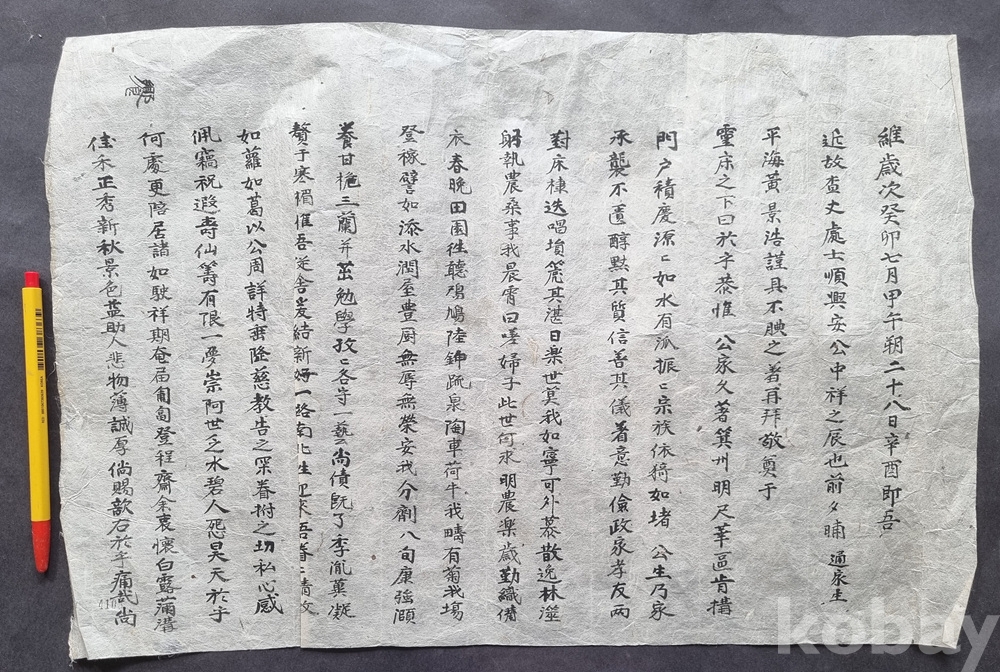 維歲次癸卯七月甲午朔二十八日辛酉即吾
近故査丈處士順興安公中祥之辰也前夕晡 通家生
平海黃景浩謹具不腆之着再拜敬奠于
靈床之下曰於乎恭惟 公家久著箕州明尺華區肯構
門戶積慶源〻如水有派振〻宗族依猗如堵 公生乃家
承襲不匱醇黙其質信善其儀着意勤儉政家孝友兩
對床棣迭唱塤箎其湛日樂世莫我如寧可外慕散逸林澨
躬執農桑事我晨宵曰嗟婦子此世何求明農樂歲勤織備
衣春晩田園徃聽鳴鳩陸鍾疏泉陶車荷牛我疇有菊我場
登稼譬如添水潤室豊厨無辱無榮安我分劑八旬康強頤
養甘梔三蘭并茁勉學孜〻各守一藝尙債旣了季胤菓凝
贅于寒楣惟吾從舍爰結新好一路南北生
如蘿如葛以公周詳特垂隆慈敎告之深眷拊之切私心感
佩竊祝遐壽仙籌有限一夢崇阿世乏水碧人怨昊天於乎
何處更陪居諸如駛祥期奄屆匍匐登程齋余衷懷白露蒲渚
佳禾正秀新秋景色益助人悲物薄誠厚倘賜歆右於乎痛哉尙
饗
kobay